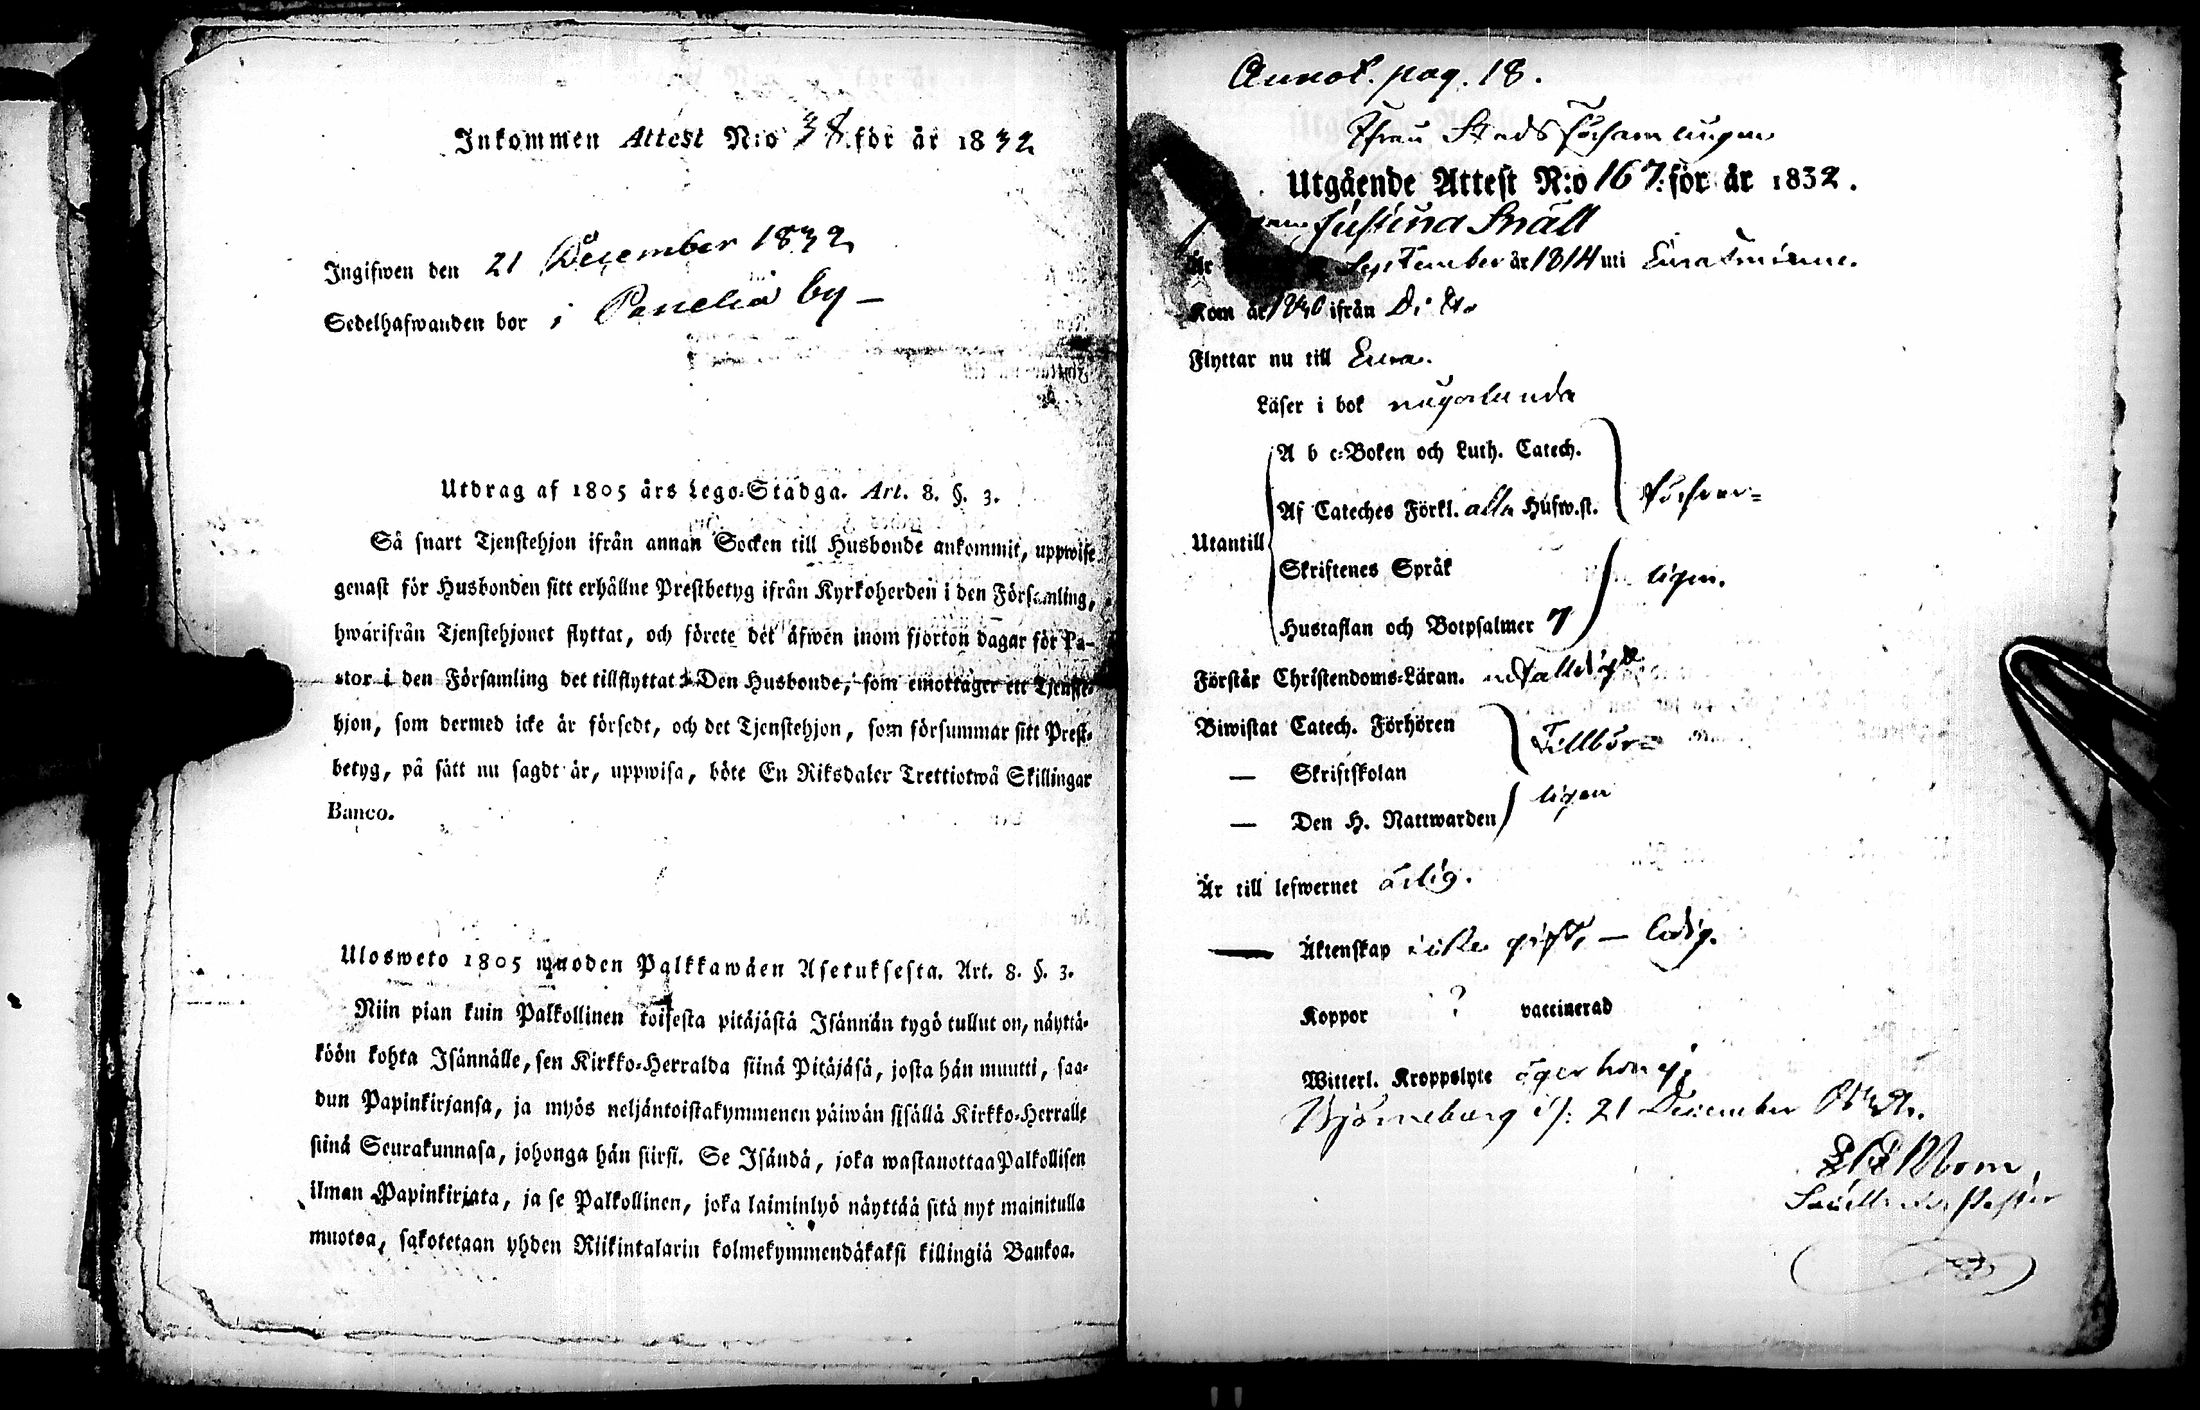 Inkommen Attest N:o 38 för år 1832
Ingifwen den 21 December 1832
Sedelhafwanden bor i Panelia by —
Utdrag af 1805 års Lego-Stadga. Art. 8. §. 3.
Så snart Tjenstehjon ifrån annan Socken till Husbonde ankommit, uppwise
genast för Husbonden sitt erhållne Prestbetyg ifrån Kyrkoherden i den Församling,
hwarifrån Tjenstehjonet flyttat, och förete det äfwen inom fjorton dagar för Pa-
stor i den Församling det tillflyttat: Den Husbonde, som emottager ett Tjenste-
hjon, som dermed icke är försedt, och det Tjenstehjon, som försummar sitt Prest-
betyg, på sätt nu sagdt är, uppwisa, böte En Riksdaler Trettiotwå Skillingar
Banco.
Ulosweto 1805 wuoden Palkkawäen Asetuksesta. Art. 8. §. 3.
Niin pian kuin Palkollinen toisesta pitäjästä Isännän tygö tullut on, näyttä-
köön kohta Isännälle, sen Kirkko-Herralda siinä Pitäjäsä, josta hän muutti, saa-
dun Papinkirjansa, ja myös neljäntoistakymmenen päiwän sisällä Kirkko-Herralle
siinä Seurakunnasa, johonga hän siirsi. Se Isändä, joka wastanottaa Palkollisen
ilman Papinkirjata, ja se Palkollinen, joka laiminlyö näyttää sitä nyt mainitulla
muotoa, sakotetaan yhden Riikintalarin kolmekymmendäkaksi killingiä Bankoa.
Annot. pag. 18.
Ifrån Stads församlingen
Utgående Attest N:o 167. för år 1832.
Justina Snäll
Är September år 1814 uti Eura
Kom år 1830 ifrån Di to
Flyttar nu till Eura.
Läser i bok någorlunda
A b c-Boken och Luth. Catech.
Af Cateches Förkl. alla Hufw.st. försvar=
Utantill
Skriftenes Språk ligen.
Hustaflan och Botpsalmer 7
Förstår Christendoms-Läran. nödtorftigt
Biwistat Catech. Förhören Tillbör=
— Skriftskolan
— Den H. Nattwarden ligen
Är till lefwernet ärlig.
— Äktenskap icke gift, — ledig.
Koppor ? vaccinerad
Witterl. Kroppslyte äger hon ej;
Björneborg d: 21 December 1832.